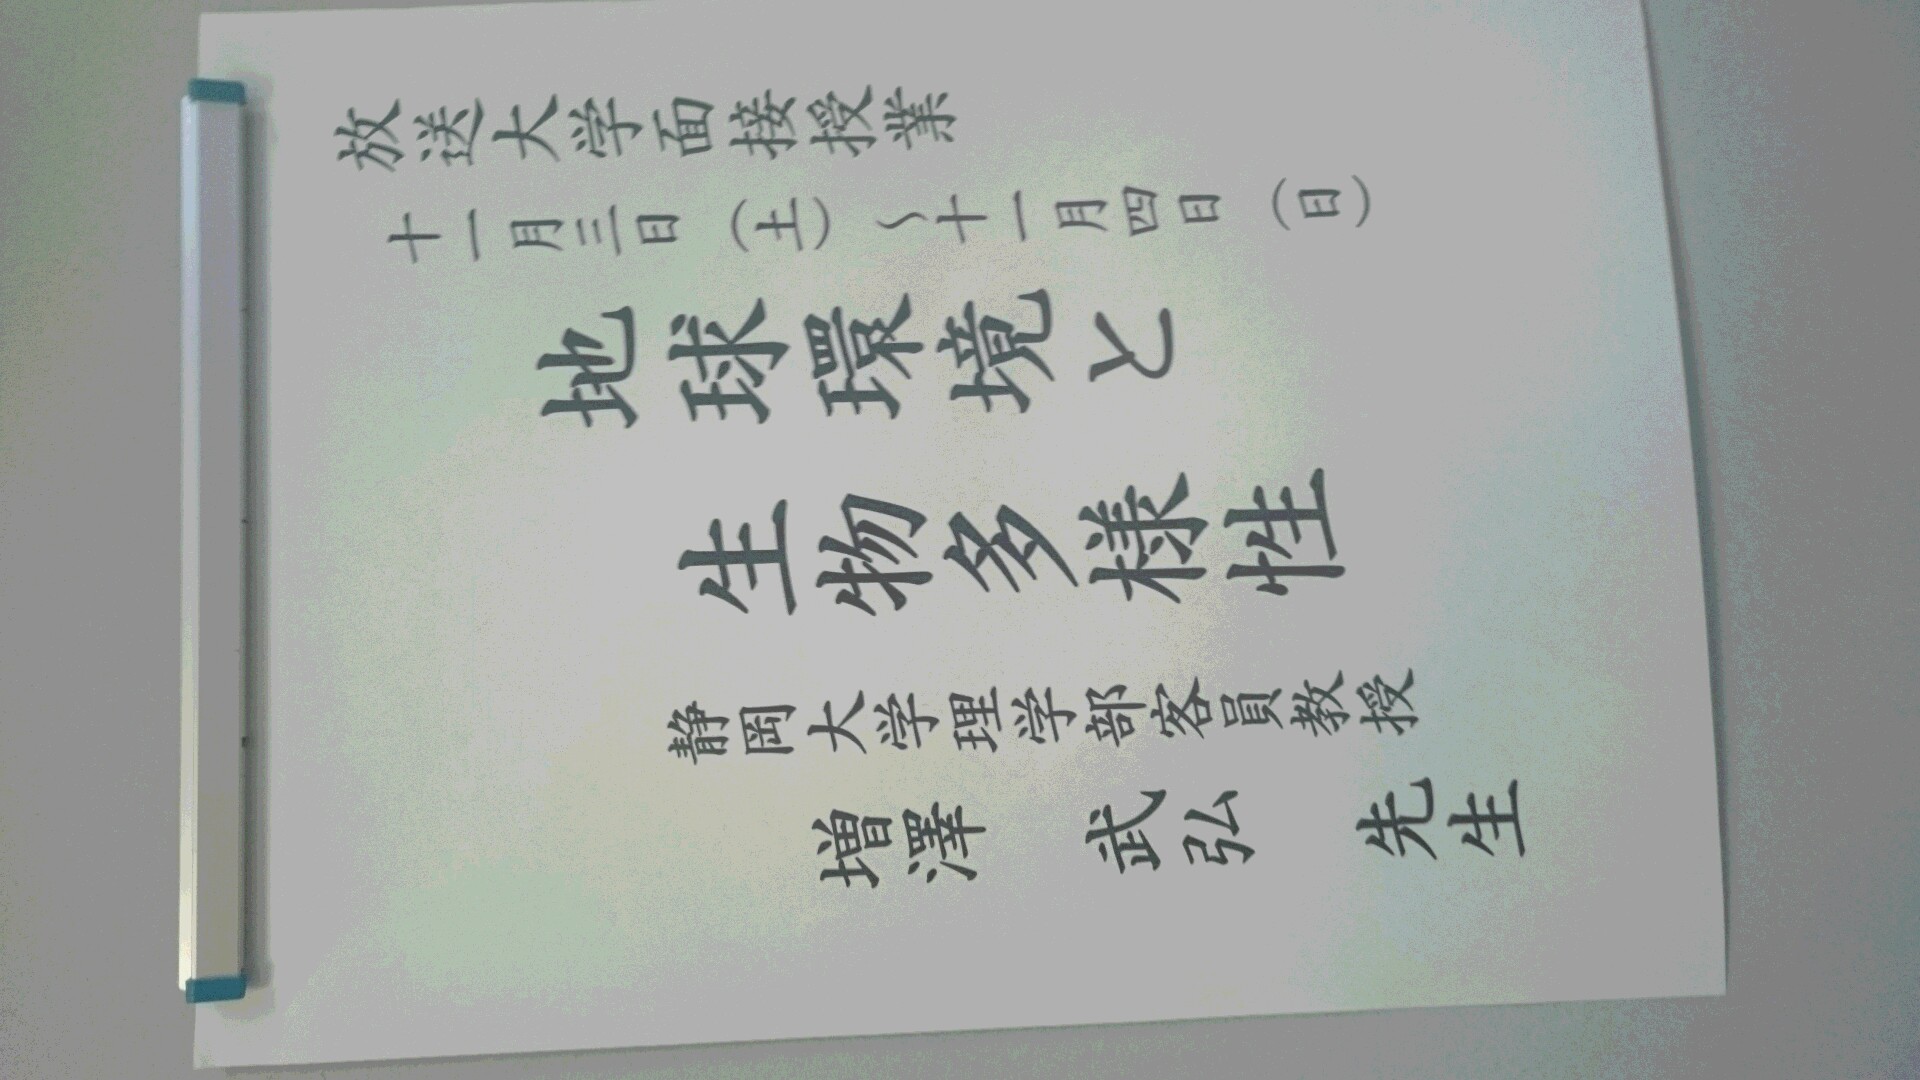 放送大学面接授業
十一月三日（土）～十一月四日（日）
地球環境と
生物多様性
静岡大学理学部客員教授
増澤　武弘　先生